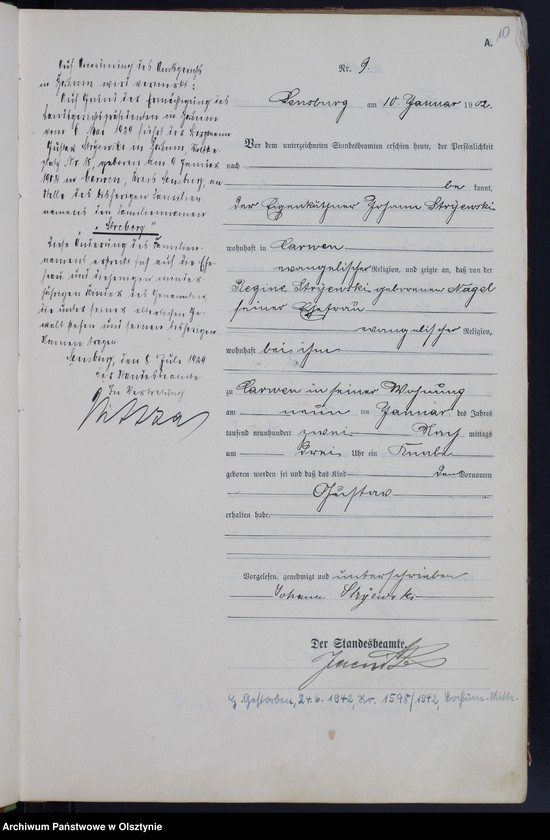 10
A.
Nr. 9.
Sensburg am 10. Januar 1902.
Vor dem unterzeichneten Standesbeamten erschien heute, der Persönlichkeit
nach
be kannt,
der Eigenkäthner Johann Stryjewski
wohnhaft in Carwen
evangelischer Religion, und zeigte an, daß von der
Regine Stryjewski geborenen Nagel
seiner Ehefrau
evangelischer Religion,
wohnhaft bei ihm
zu Carwen in seiner Wohnung
am neun ten Januar des Jahres
tausend neunhundert zwei Nach mittags
um drei Uhr ein Knabe
geboren worden sei und daß das Kind den Vornamen
Gustav
erhalten habe.
Vorgelesen, genehmigt und unterschrieben
Johann Stryjewski
Der Standesbeamte.
G. Gestorben, 24.6.1942, Nr. 1598/1942, Bochum-Mitte.
Auf Anordnung des Amtsgerichts
in Bochum wird vermerkt:
Auf Grund der Ermächtigung des
Landgerichtspräsidenten in Bochum
vom 6. Mai 1929 führt der Bergmann
Gustav Stryjewski in Bochum,
platz Nr. 15, geboren am 9. Januar
1902 in Carwen, Kreis Sensburg, an
Stelle des bisherigen Familien-
namens den Familiennamen
"Streberg"
Diese Änderung des Familien-
namens erstreckt sich auf die Ehe-
frau und diejenigen minder-
jährigen Kinder des Genannten,
die unter seiner elterlichen Ge-
walt stehen und seinen bisherigen
Namen tragen
Sensburg, den 8. Juli 1929
Der Standesbeamte
In Vertretung
Archiwum Państwowe w Olsztynie